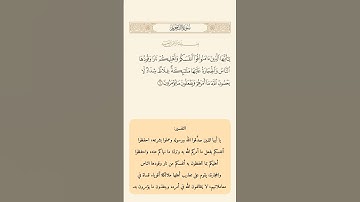 سُورَةُ التَّحْرِيمِ
يَٰٓأَيُّهَا ٱلَّذِينَ ءَامَنُوا۟ قُوٓا۟ أَنفُسَكُمْ وَأَهْلِيكُمْ نَارًا وَقُودُهَا
ٱلنَّاسُ وَٱلْحِجَارَةُ عَلَيْهَا مَلَٰٓئِكَةٌ غِلَاظٌ شِدَادٌ لَّا
يَعْصُونَ ٱللَّهَ مَآ أَمَرَهُمْ وَيَفْعَلُونَ مَا يُؤْمَرُونَ ٦
التفسير:
يا أيها الذين صدَّقوا الله ورسوله وعملوا بشرعه، احفظوا
أنفسكم بفعل ما أمركم الله به وترك ما نهاكم عنه، واحفظوا
أهليكم بما تحفظون به أنفسكم من نار وقودها الناس
والحجارة، يقوم على تعذيب أهلها ملائكة أقوياء قساة في
معاملاتهم، لا يخالفون الله في أمره، وينفذون ما يؤمرون به.